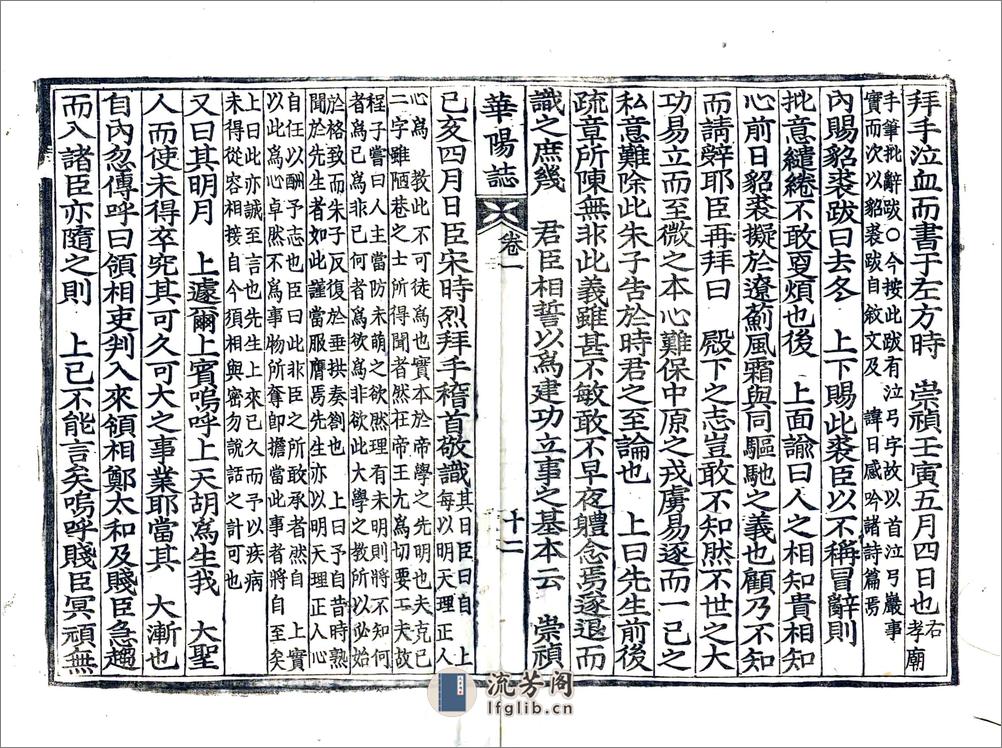 拜手泣血而書于左方時　崇禎壬寅五月四日也右孝廟
手筆批辭跋○今按此跋有泣弓字故以首泣弓嚴事
實而次以貂裘跋自敘文及　諱日感吟諸詩篇焉
內賜貂裘跋曰去冬　上下賜此裘臣以不稱冒辭則
批意繾綣不敢更煩也後　上面諭曰人之相知貴相知
心前日貂裘擬於遼薊風霜與同驅馳之義也顧乃不知
而請辭耶臣再拜曰　殿下之志豈敢不知然不世之大
功易立而至微之本心難保中原之戎虜易逐而一己之
私意難除此朱子告於時君之至論也　上曰先生前後
疏章所陳無非此義雖甚不敏敢不早夜軆念焉遂退而
識之庶幾　君臣相誓以爲建功立事之基本云　崇禎
華陽誌　卷一　十二
己亥四月日臣宋時烈拜手稽首敬識其日臣曰自　上每以明天理正人
心爲　教此不可徒爲也實本於帝學之先明也夫克己
二字雖陋巷之士所得聞者然在帝王尤爲切要工夫故
程子嘗曰人主當防未萌之欲然理有未明則將不知何
者爲己非己何者爲欲非欲此大學之教所以必始
於格致而朱子反復於垂拱奏劄也　上曰予自昔時熟
聞於先生者如此謹當服膺焉先生亦以明天理正人心
自任以酬予志也臣曰此非臣之所敢承者然自　上實
以此爲心卓然不爲事物所奪卽擔當此事者將自至矣
上曰此亦誠至言也先生上來已久而予以疾病
未得從容相接自今須相與密勿說話之計可也
又曰其明月　上遽爾上賓嗚呼上天胡爲生我　大聖
人而使未得卒究其可久可大之事業耶當其　大漸也
自內忽傳呼曰領相吏判入來領相鄭太和及賤臣急趨
而入諸臣亦隨之則　上已不能言矣嗚呼賤臣冥頑無
流芳阁
lfglib.cn